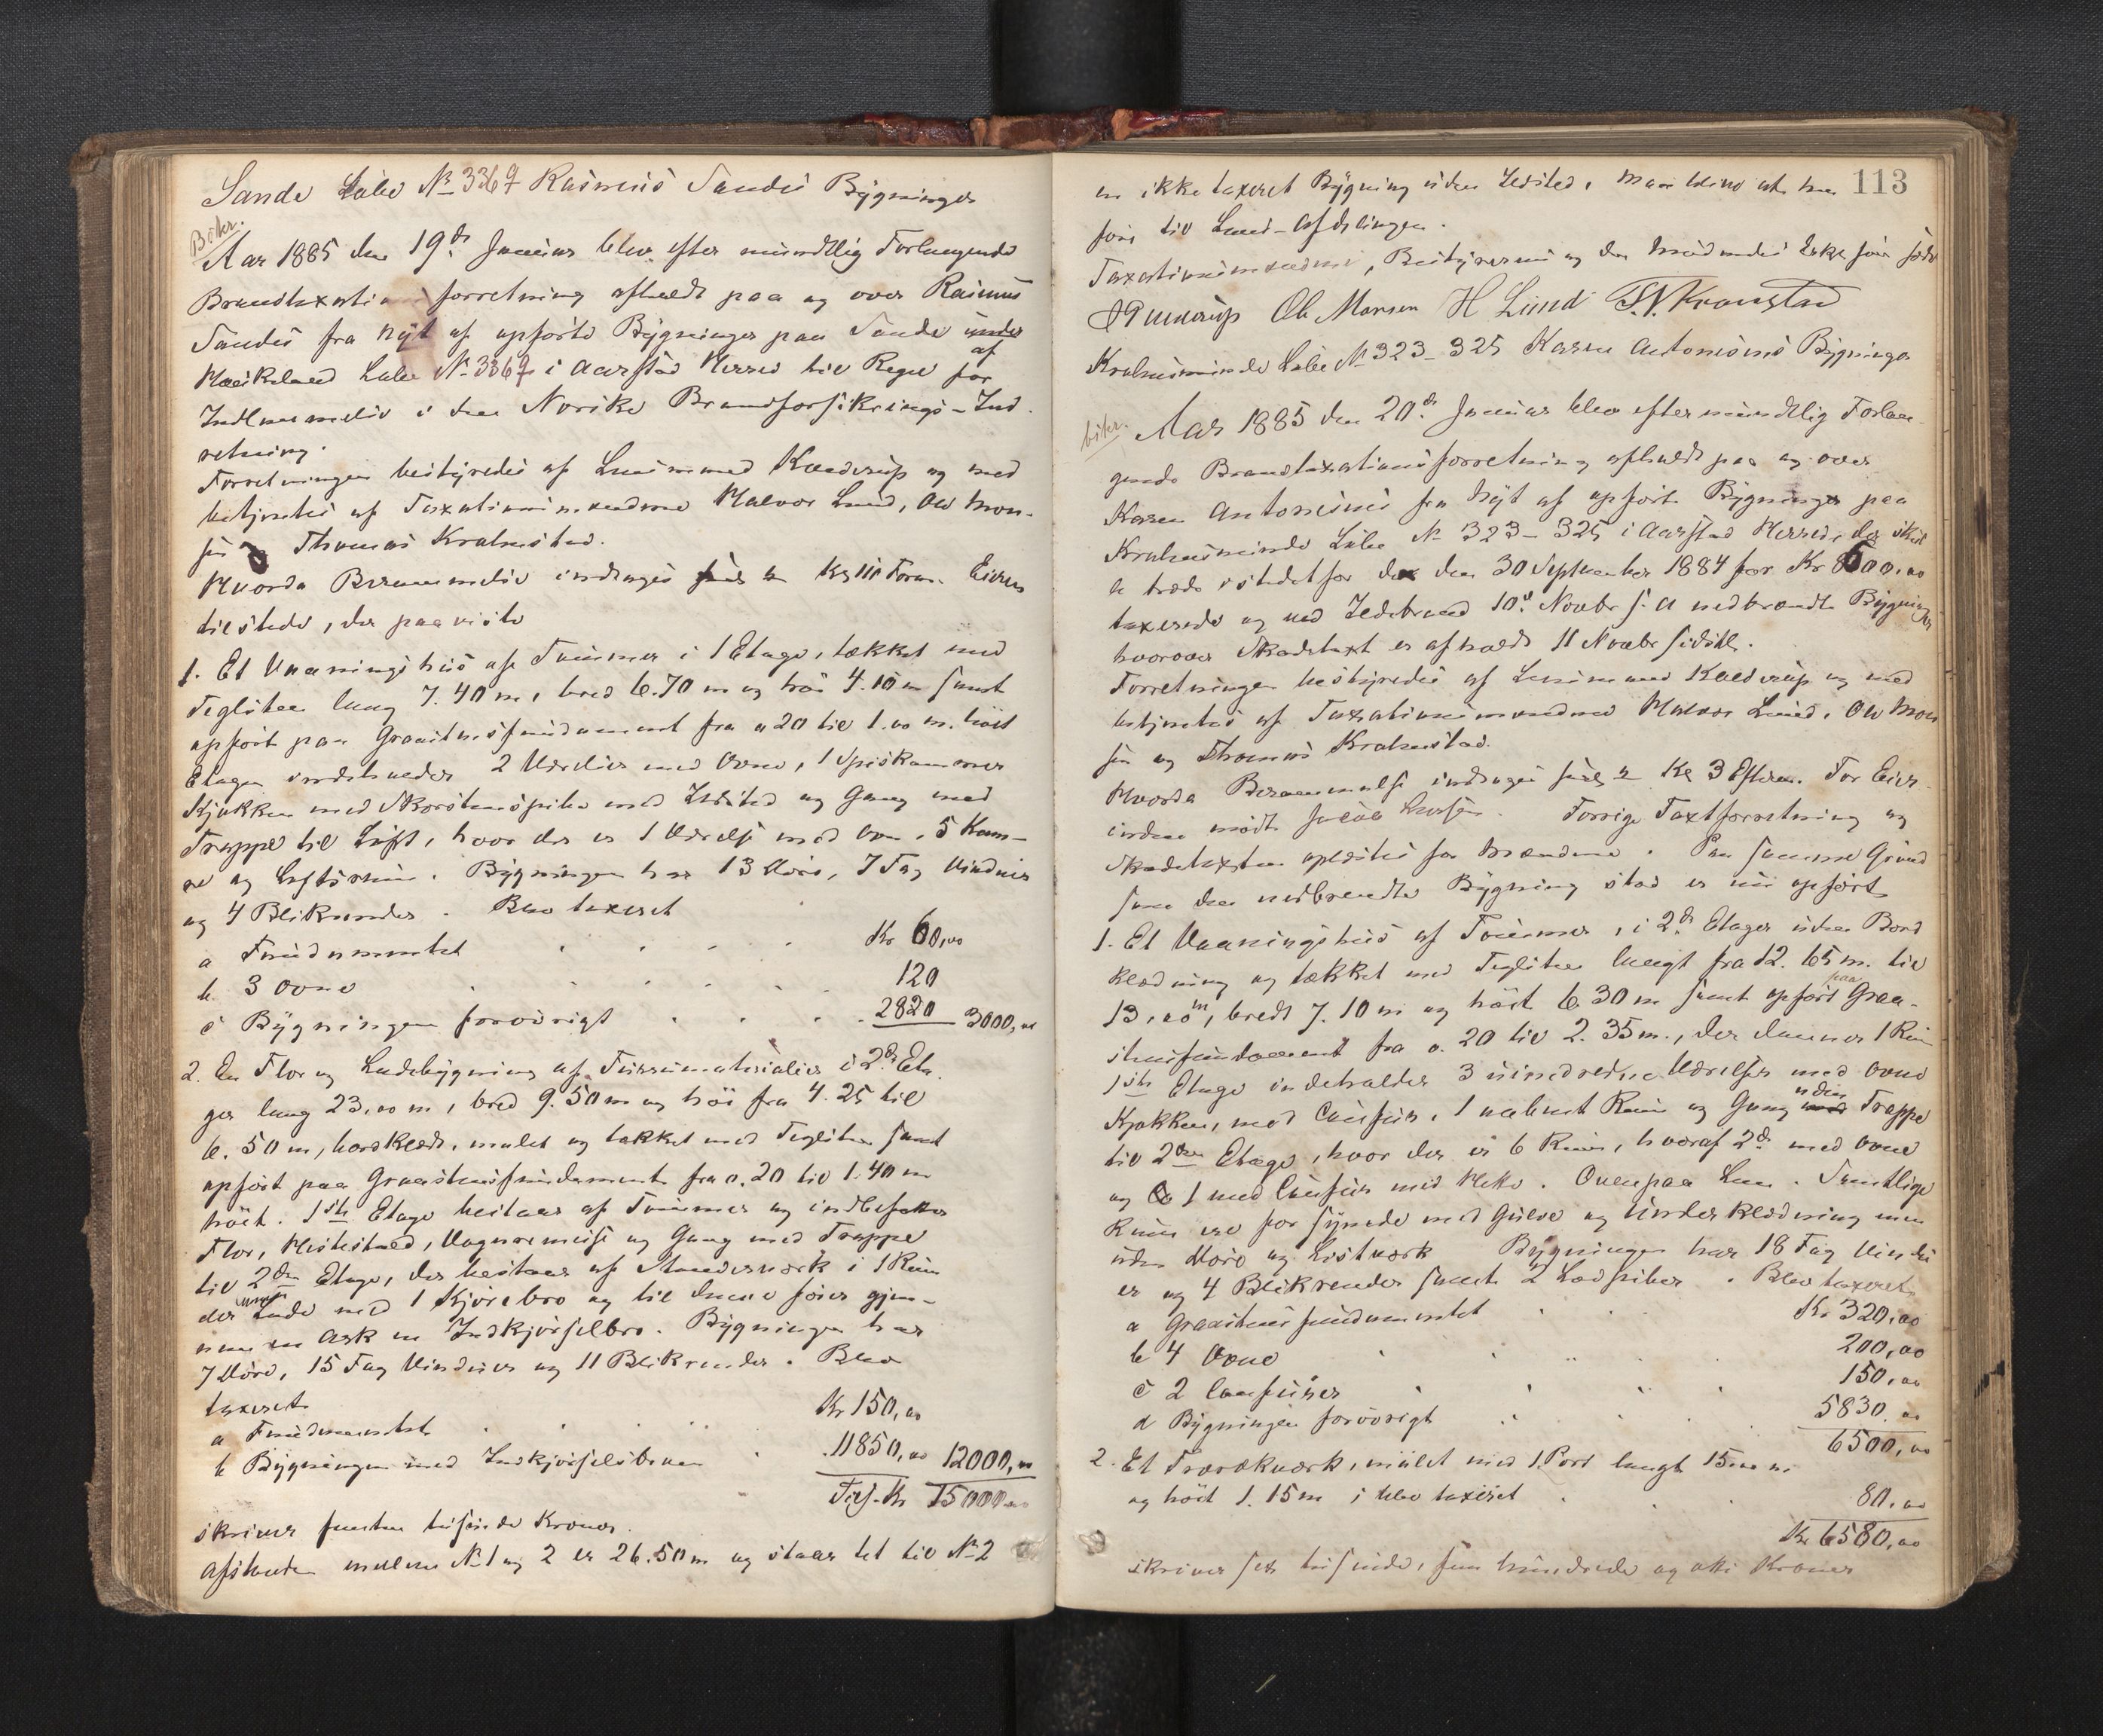 Sande Løbe No 336 Rasmus Sandes Bygninger
Bekr.
Aar 1885 den 19de Januar blev efter mundtlig Forlangende
Brandtaxations forretning afholdt paa og over Rasmus
Sandes fra nyt af opførte Bygninger paa Sande under
Løbe No 336 i Aarstad Herred til Regel for af
Indlemmelse i den Norske Brandforsikrings-Ind
retning.
Forretningen bestyredes af Lensmand og med
betjentes af Taxationsmændene Halvor Lund, Ole Mon-
sen Thomas Krohnstad.
Hvorda Berammelse indtages Kl 11 Form. Eieren
tilstede, der paaviste
1. Et Vaaningshus af Tømmer i 1 Etage, tækket med
Teglsten lang 7.40 m, bred 6.70 m og høi 4.10 m samt
opført paa Graastensfundament fra 0.20 til 1.00 m. høit
Etagen indeholder 2 Værelser med Ovne, 1 Spiskammer
Kjøkken med Skorstenspibe med Ildsted og Gang med
Trappe til Loft, hvor der er 1 Værelse med Ovn, 5 Kam-
re og Loftsrum. Bygningen har 13 Døre, 7 Fag Vinduer
og 4 Blikrender. Blev taxeret
a Fundamentet Kr 60,00
b. 3 Ovne 120
c Bygningen forøvrigt 2820 3000,00
2. En Flor og Ladebygning af Tørrmaterialier i 2de Eta-
ger lang 23,00 m, bred 9.50 m og høi fra 4.25 til
6.50 m, bordklædt, malet og tækket med Teglsten samt
opført paa Graastensfundament fra 0.20 til 1.40 m
høit. 1ste Etage bestaar af Tømmer og indbefatter
Flor, Hestestald, Vognremise og Gang med Trappe
til 2den Etage, der bestaar af Standerværk i 1 Rum
der Lade med 1 Kjørebro og til denne fører gjen-
nem en Ark en Indkjørselbro. Bygningen har
7 Døre, 15 Fag Vinduer og 11 Blikrender. Blev
taxeret
a Fundamentet Kr 150,00
b Bygningen med Indkjørselsbroen 11850,00 12000,00
Tils. Kr 15000,00
skriver femten tusinde Kroner.
Afstanden mellem No 1 og 2 er 26.50 m og staar tet til No 2
113
en ikke taxeret Bygning uden Ildsted,
føre til Lund-Afdelingen.
Taxationsmændene, Bestyreren og
Ole Monsen H Lund T. N. Kronstad
Krohnsminde Løbe No 323-325 Karen Antonisens Bygninger
bekr.
Aar 1885 den 20de Januar blev efter mundtlig Forlan-
gende Brandtaxationsforretning afholdt paa og over
Karen Antonisens fra nyt af opførte Bygninger paa
Krohnsminde Løbe No 323-325 i Aarstad Herred, der skal
træde istedetfor de den 30 September 1884 for Kr 00,00
taxerede og ved Ildebrand 10de Novbr f. A nedbrændte Bygninger
hvorover Skadetaxt er afholdt 11 Novbr sidstl.
Forretningen bestyredes af Lensmand og med
betjentes af Taxationsmændene Halvor Lund, Ole Mon
sen og Thomas Krohnstad.
Hvorda Berammelse indtages Kl 3 Efterm. For Eier-
inden mødte Jacob Larsen. Forrige Taxtforretning og
Skadetaxten oplæstes for Mændene. Paa samme Grund
som den nedbrændte Bygning stod er nu opført
1. Et Vaaningshus af Tømmer, i 2de Etager uden Bord
klædning og tækket med Teglsten langt fra 12.65 m. til
13,00 m, bredt 7.10 m og høit 6.30 m samt opført paa Graa-
stensfundament fra 0.20 til 2.35 m., der danner 1 Rum
1ste Etage indeholder 3 uindredne Værelser med Ovne
Kjøkken, med Comfur, 1 aabent Rum og Gang uden Trappe
til 2den Etage, hvor der er 6 Rum, hvoraf 2de med Ovne
og 1 med Comfur med Hette. Ovenpaa Lem. Samtlige
Rum ere forsynede med Gulve og Underklædning men
uden Døre og Listværk Bygningen har 18 Fag Vindu
er og 4 Blikrender samt 2 Lodpiber. Blev taxeret
a Graastensfundamentet Kr 320,00
b 4 Ovne 200,00
c 2 Comfurer 150,00
d Bygningen forøvrigt 5830,00
6500,00
2. Et Trærækværk, malet med 1 Port langt 15,00 m
og høit 1.15 m, blev taxeret 80,00
Kr 6580,00
skriver sex tusinde, fem hundrede og otti Kroner